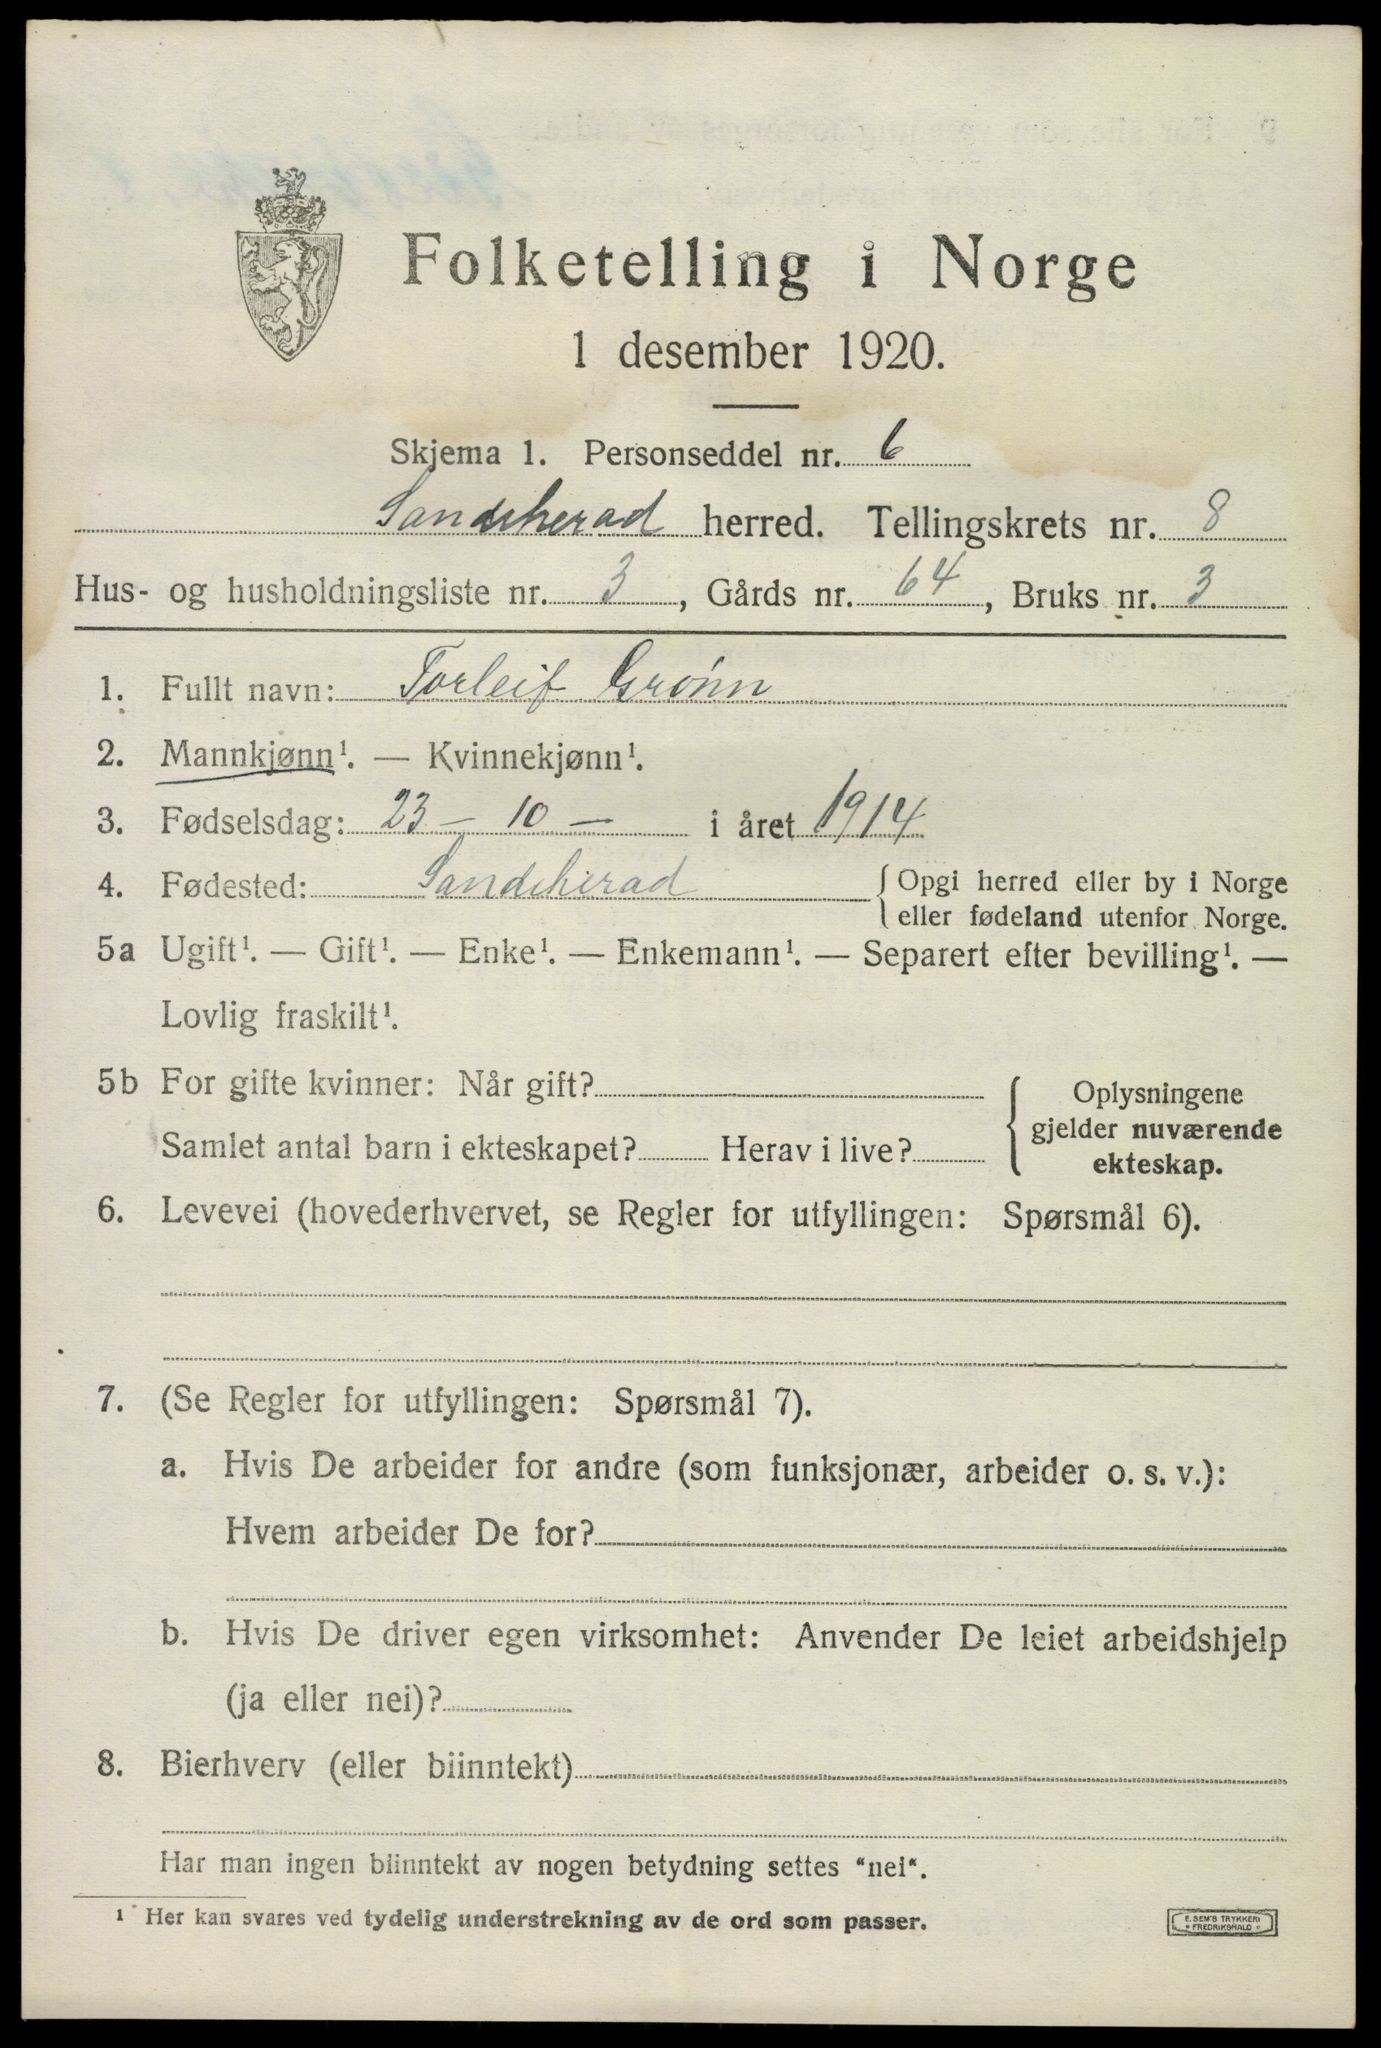 Folketelling i Norge
1 desember 1920.
Skjema 1. Personseddel nr. 6
Sandeherad herred. Tellingskrets nr. 8
Hus- og husholdningsliste nr. 3, Gårds nr. 64, Bruks nr. 3
1. Fullt navn: Torleif Grønn
2. Mannkjønn¹. — Kvinnekjønn¹.
3. Fødselsdag: 23 – 10 – i året 1914
4. Fødested: Sandeherad { Opgi herred eller by i Norge
eller fødeland utenfor Norge.
5a Ugift¹. — Gift¹. — Enke¹. — Enkemann¹. — Separert efter bevilling¹. —
Lovlig fraskilt¹.
5b For gifte kvinner: Når gift? { Oplysningene
gjelder nuværende
Samlet antal barn i ekteskapet? Herav i live?
ekteskap.
6. Levevei (hovederhvervet, se Regler for utfyllingen: Spørsmål 6).
7. (Se Regler for utfyllingen: Spørsmål 7).
a. Hvis De arbeider for andre (som funksjonær, arbeider o. s. v.):
Hvem arbeider De for?
b. Hvis De driver egen virksomhet: Anvender De leiet arbeidshjelp
(ja eller nei)?
8. Bierhverv (eller biinntekt)
Har man ingen biinntekt av nogen betydning settes "nei".
¹ Her kan svares ved tydelig understrekning av de ord som passer.
E. SEM'S TRYKKERI
FREDRIKSHALD